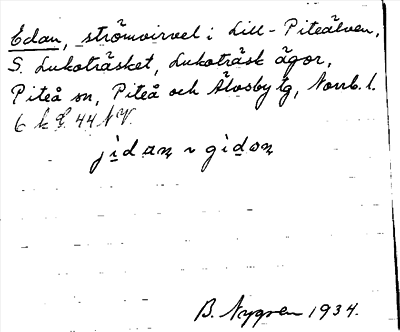 Edan, strömvirvel i Lill-Piteälven,
S. Lukoträsket, Lukoträsk ägor,
Piteå sn, Piteå och Älvsby tg, Norrb. l.
jìdan ~ gìdon
B. Nygren 1934.